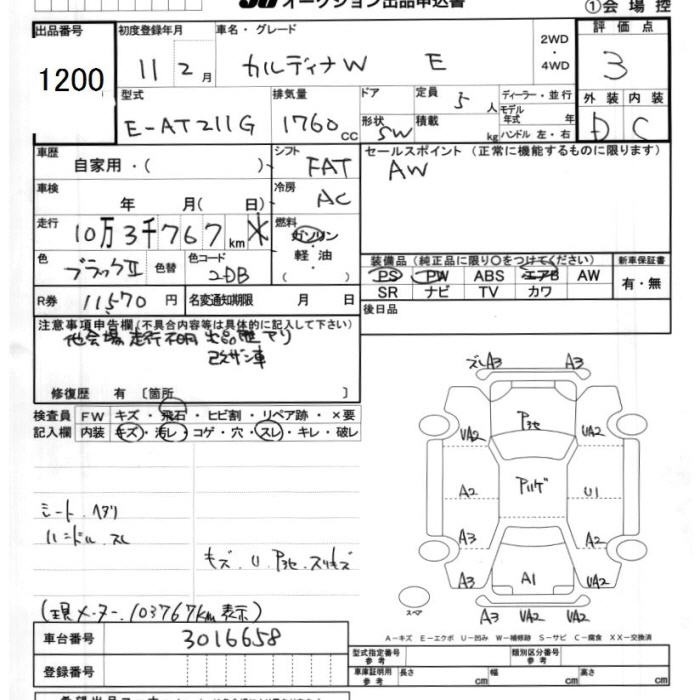 オークション出品申込書
①会場控
出品番号 初度登録年月 車名・グレード 評価点
1200 11 2月 カルディナW E 2WD ・ 4WD 3
型式 排気量 ドア 定員 5人 ディーラー・並行 外装 内装
E-AT211G 1760cc 形状 SW 積載 kg モデル年式 年 ハンドル 左・右 D C
車歴 自家用・( ) シフト FAT セールスポイント (正常に機能するものに限ります)
車検 年 月(日) 冷房 AC AW
走行 10万3千767km ※ 燃料 ガソリン 軽油 ( )
色 ブラックⅡ 色替 色コード 2DB
装備品(純正品に限り○をつけてください) 新車保証書
PS PW ABS エアB AW 有・無
SR ナビ TV カワ
R券 11,570円 名変通知期限 月 日 後日品
注意事項申告欄(不具合内容等は具体的に記入して下さい)
他会場走行不明出品歴アリ
改ザン車
修復歴 有〔箇所 〕
検査員 FW キズ・飛石・ヒビ割・リペア跡・×要
記入欄 内装 キズ・汚レ・コゲ・穴・スレ・キレ・破レ
シート.ヘタリ
ハンドル スレ
キズ.U.Pヨセ.スリキズ
(現メーター.103767km表示)
ズレA3 A3
Pヨセ
UA2 UA2
A2 Pハゲ U1
A3 A2
A3 A1 UA2
スペア A3 UA2 UA2
A-キズ E-エクボ U-凹み W-補修跡 S-サビ C-腐食 XX-交換済
車台番号 3016658 型式指定番号 参考 類別区分番号 参考
登録番号 車庫証明用 参考 長さ cm 幅 cm 高さ cm